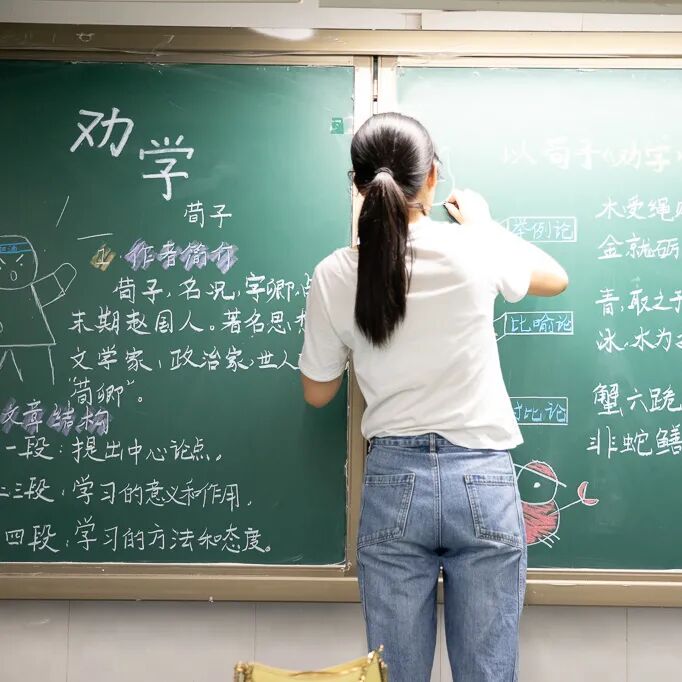 劝学
荀子
一 作者简介
荀子，名况，字卿，
末期赵国人。著名思想
文学家，政治家，世人
"荀卿"。
文章结构
一段：提出中心论点。
二三段：学习的意义和作用。
四段：学习的方法和态度。
以荀子《劝学
举例论
木受绳则
金就砺
青，取之于
比喻论
冰，水为之
蟹六跪
对比论
非蛇鳝